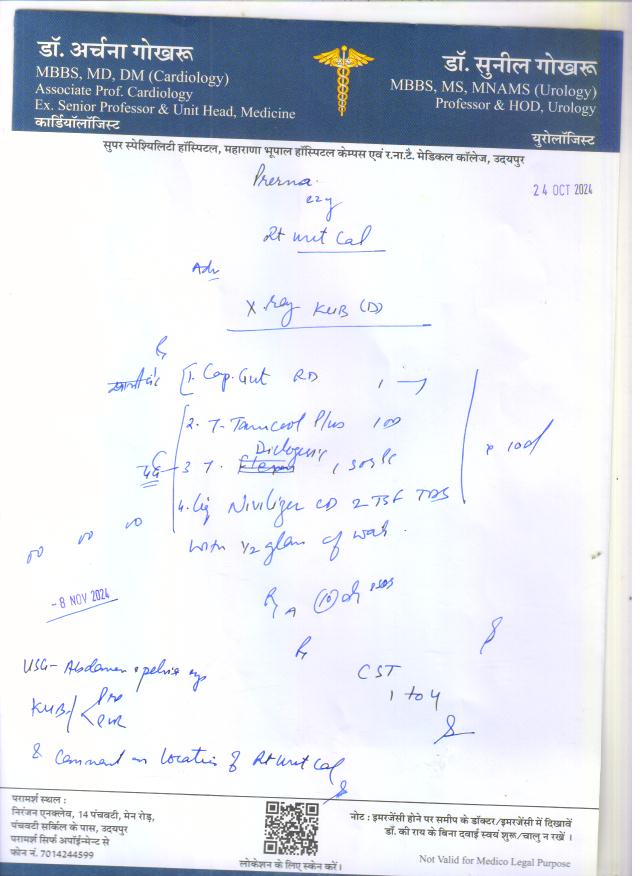 डॉ. अर्चना गोखरू
MBBS, MD, DM (Cardiology)
Associate Prof. Cardiology
Ex. Senior Professor & Unit Head, Medicine
कार्डियॉलॉजिस्ट
डॉ. सुनील गोखरू
MBBS, MS, MNAMS (Urology)
Professor & HOD, Urology
युरोलॉजिस्ट
सुपर स्पेशियलिटी हॉस्पिटल, महाराणा भूपाल हॉस्पिटल केम्पस एवं र.ना.टै. मेडिकल कॉलेज, उदयपुर
Prerna
24 OCT 2024
Rt Uret Cal
Adv
X-ray KUB (D)
1. Cap. Gut RD
2. T. Plus
दर्द 3 T. , SOS
4. Liq CD 2 TSF TDS
with 1/2 glass of
x 10d
- 8 NOV 2024
USG - Abdomen & pelvis
KUB Pre
CST
1 to 4
& Comment on Location of Rt Uret Cal
परामर्श स्थल :
निरंजन एनक्लेव, 14 पंचवटी, मेन रोड़,
पंचवटी सर्किल के पास, उदयपुर
परामर्श सिर्फ अपॉईन्मेन्ट से
फोन नं. 7014244599
लोकेशन के लिए स्केन करें।
नोट : इमरजेंसी होने पर समीप के डॉक्टर/इमरजेंसी में दिखावें
डॉ. की राय के बिना दवाई स्वयं शुरू/चालु न रखें ।
Not Valid for Medico Legal Purpose